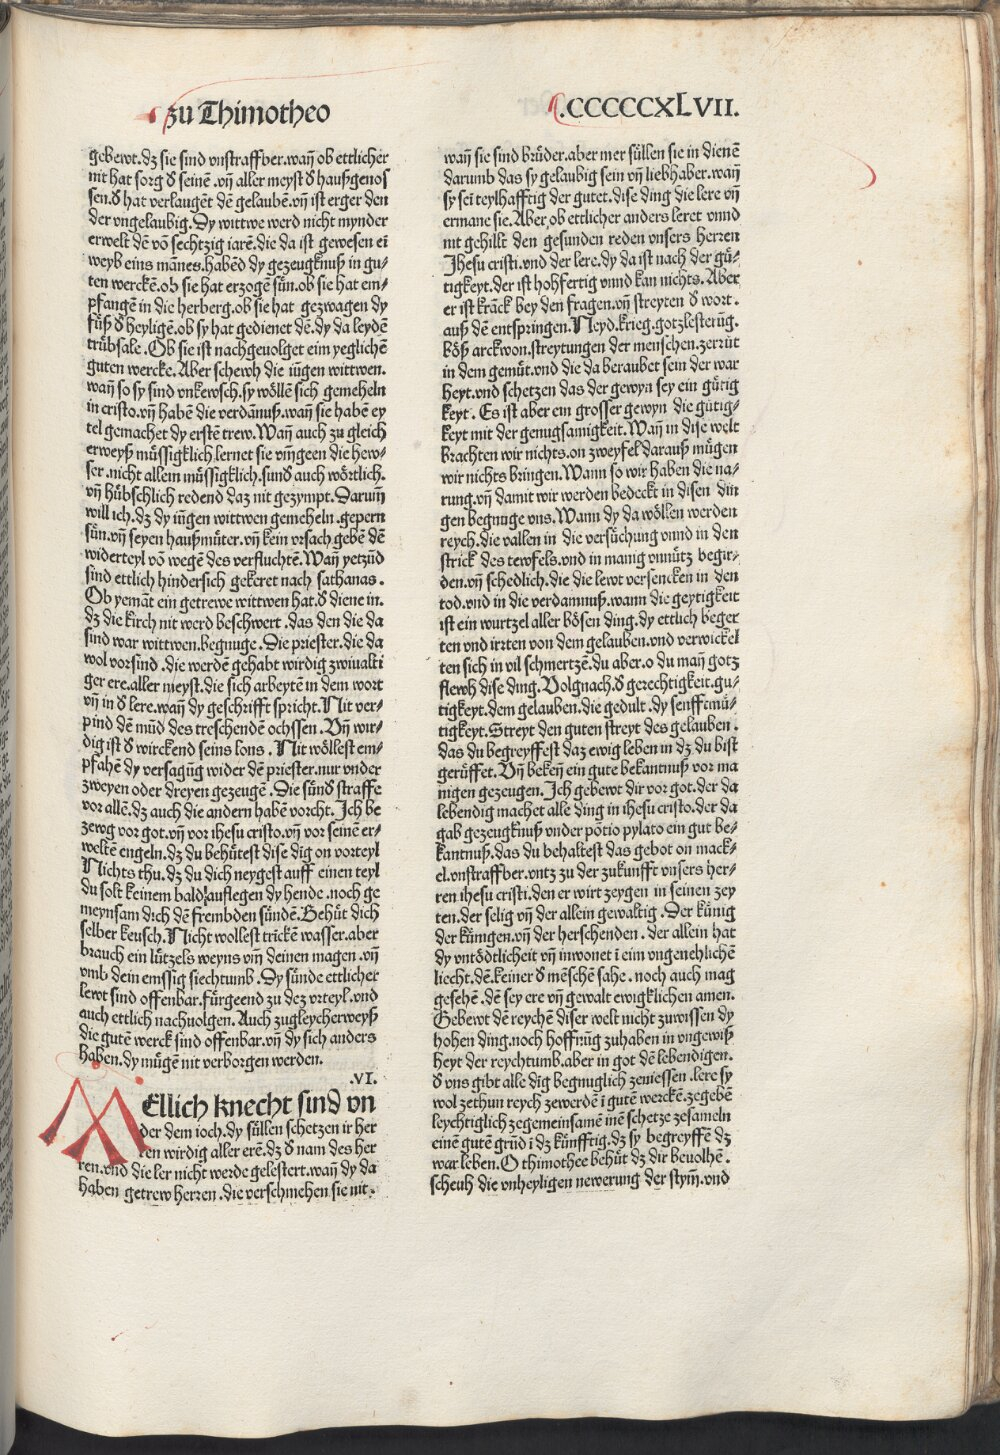 zu Thimotheo
.CCCCCXLVII.
gebewt.dz sie sind vnstraffber.wañ ob ettlicher
nit hat sorg d̕ seinē .vñ aller meyst d̕ haußgenos
sen.d̕ hat verlaugēt dē gelaubē.vñ ist erger den
der vngelaubig.Dy wittwe werd nicht mynder
erwelt dē vō sechtzig iarē.die da ist gewesen eī
weyb eins mānes.habēd dy gezeugknuß in gu-
ten werckē.ob sie hat erzogē sün̄.ob sie hat em-
pfangē in die herberg.ob sie hat gezwagen dy
fuͤß d̕ heyligē.ob sy hat gedienet dē.dy da leydē
truͤbsale .Ob sie ist nachgeuolget eim yeglichē
guten wercke.Aber schewh die iūgen wittwen.
wañ so sy sind vnkewsch.sy woͤllē sich gemeheln
in cristo.vñ habē die verdānuß.wañ sie habē ey
tel gemachet dy erstē trew.Wañ auch zu gleich
erweyß muͤssigklich.lernet sie vm̄geen die hew-
ser.nicht allein muͤssigklich.sund̕ auch woͤrtlich.
vñ huͤbschlich redend daz nit gezympt.Darum̄
will ich.dz dy iūgen wittwen gemeheln .gepern
suͤn.vñ seyen haußmuͤter.vñ kein vrsach gebē dē
widerteyl vō wegē des verfluchtē.Wañ yetzūd
sind ettlich hindersich gekeret nach sathanas .
Ob yemāt ein getrewe wittwen hat.d̕ diene in.
dz die kirch nit werd beschwert .das den die da
sind war wittwen.begnuge .Die priester.die da
wol vorsind .die werdē gehabt wirdig zwiualti
ger ere.aller meyst.die sich arbeytē in dem wort
vñ in d̕ lere.wañ dy geschrifft spricht.Nit ver-
pind dē mūd des treschendē ochssen .Vñ wir-
dig ist d̕ wirckend seins lons .Nit woͤllest em-
pfahē dy versagūg wider dē priester.nur vnder
zweyen oder dreyen gezeugē .Die sünd̕ straffe
vor allē.dz auch die andern habē vorcht. Ich be
zewg vor got.vñ vor ihesu cristo.vñ vor seinē er-
weltē engeln.dz du behuͤtest dise dīg on vorteyl
Nichts thu.dz du dich neygest auff einen teyl
du solt keinem bald auflegen dy hende .noch ge
meynsam dich dē frembden sündē.Behuͤt dich
selber keusch.Nicht wollest trīckē wasser.aber
brauch ein luͤtzels weyns vm̄ deinen magen .vñ
vmb dein emssig siechtumb .Dy sünde ettlicher
lewt sind offenbar.fuͤrgeend zu dez vrteyl.vnd
auch ettlich nachuolgen. Auch zugleycherweyß
die gutē werck sind offenbar.vñ dy sich anders
haben.dy muͤgē nit verborgen werden.
.VI.
MEllich knecht sind vn
der dem ioch.dy süllen schetzen ir her
ren wirdig aller erē.dz d̕ nam des her
ren.vnd die ler nicht werde gelestert.wañ dy da
haben getrew herren .die verschmehen sie nit.
wañ sie sind bruͤder.aber mer süllen sie in dienē
darumb das sy gelaubig sein vñ liebhaber.wañ
sy seī teylhafftig der gutet.dise ding die lere vñ
ermane sie.Aber ob ettlicher anders leret vnnd
nit gehillt den gesunden reden vnsers herren
Jhesu cristi.vnd der lere.dy da ist nach der guͤ-
tigkeyt.der ist hohfertig vnnd kan nichts. Aber
er ist krāck bey den fragen.vñ streyten d̕ wort .
auß dē entspringen.Neyd.krieg.gotzlesterūg.
boͤß arckwon.streytungen der menschen.zerruͤt
in dem gemuͤt.vnd die da beraubet sein der war
heyt.vnd schetzen das der gewyn sey ein guͤtig
keyt . Es ist aber ein grosser gewyn die guͤtig-
keyt mit der genugsamigkeit.Wañ in dise welt
brachten wir nichts.on zweyfel darauß muͤgen
wir nichts bringen.Wann so wir haben die na-
rung.vñ damit wir werden bedeckt in disen din
gen begnuge vns.Wann dy da woͤllen werden
reych.die vallen in die versuͤchung vnnd in den
strick des tewfels.vnd in manig vnnuͤtz begir-
den.vñ schedlich.die die lewt versencken in den
tod.vnd in die verdamnuß.wann die geytigkeit
ist ein wurtzel aller boͤsen ding.dy ettlich beger
ten vnd irrten von dem gelauben.vnd verwickel
ten sich in vil schmertzē.du aber.o du mañ gotz
flewh dise ding.Volgnach.d̕ gerechtigkeit.gu-
tigkeyt.dem gelauben.die gedult.dy senfftmuͤ-
tigkeyt.Streyt den guten streyt des gelauben .
das du begreyffest daz ewig leben in dz du bist
geruͤffet. Vñ bekeñ ein gute bekantnuß vor ma
nigen gezeugen. Ich gebewt dir vor got.der da
lebendig machet alle ding in ihesu cristo.der da
gab gezeugknuß vnder pōtio pylato ein gut be-
kantnuß.das du behaltest das gebot on mack-
el.vnstraffber.vntz zu der zukunfft vnsers her-
ren ihesu cristi.den er wirt zeygen in seinen zey
ten.der selig vñ der allein gewaltig .Der kuͤnig
der kuͤnigen.vñ der herschenden . der allein hat
dy vntoͤdtlicheit vñ inwonet ī eim vngenehlichē
liecht.dē.keiner d̕ mēschē sahe . noch auch mag
gesehē .dē sey ere vñ gewalt ewigklichen amen.
Gebewt dē reychē diser welt nicht zuwissen dy
hohen ding.noch hoffnūg zuhaben in vngewiß
heyt der reychtumb.aber in got dē lebendigen.
d̕ vns gibt alle dīg begnuglich zeniessen .lere sy
wol zethun reych zewerdē ī gutē werckē.zegebē
leychtiglich zegemeinsamē inē schetze zesameln
einē gutē grūd ī dz kuͤnfftig.dz sy begreyffē dz
war leben. O thimothee behuͤt dz dir beuolhē .
scheuh die vnheyligen newerung der stym̄.vnd